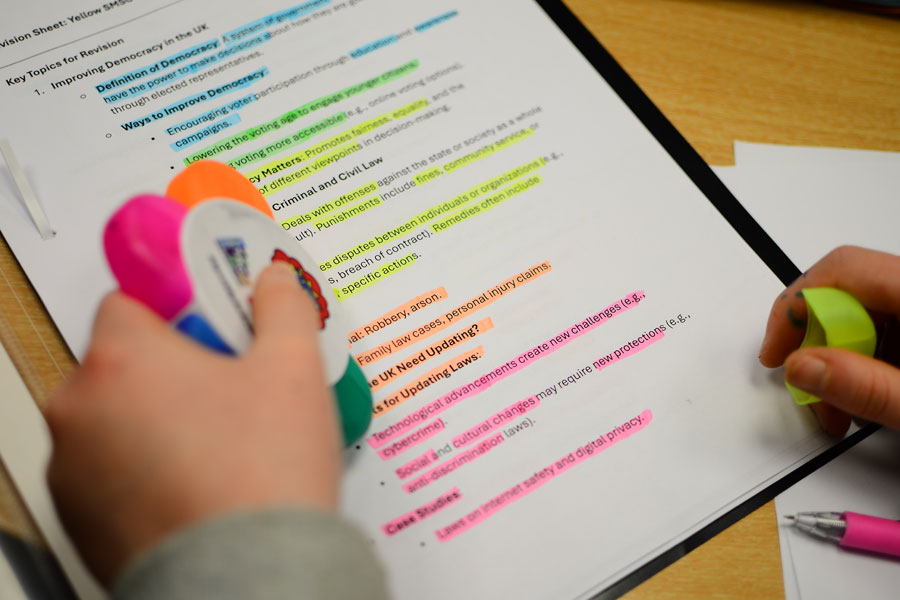 vision Sheet: Yellow SMSC
Key Topics for Revision
1. Improving Democracy in the UK
○ Definition of Democracy: A system of government
have the power to make decisions about how they are
through elected representatives.
○ Ways to Improve Democracy:
Encouraging voter participation through education and
campaigns.
Lowering the voting age to engage younger citizens.
voting more accessible (e.g., online voting options).
cy Matters: Promotes fairness, equality, and the
of different viewpoints in decision-making.
Criminal and Civil Law
Deals with offenses against the state or society as a whole
ult). Punishments include fines, community service, or
es disputes between individuals or organizations (e.g.,
s, breach of contract). Remedies often include
specific actions.
al: Robbery, arson.
Family law cases, personal injury claims.
e UK Need Updating?
s for Updating Laws:
Technological advancements create new challenges (e.g.,
cybercrime).
Social and cultural changes may require new protections (e.g.,
anti-discrimination laws).
Case Studies:
Laws on internet safety and digital privacy.